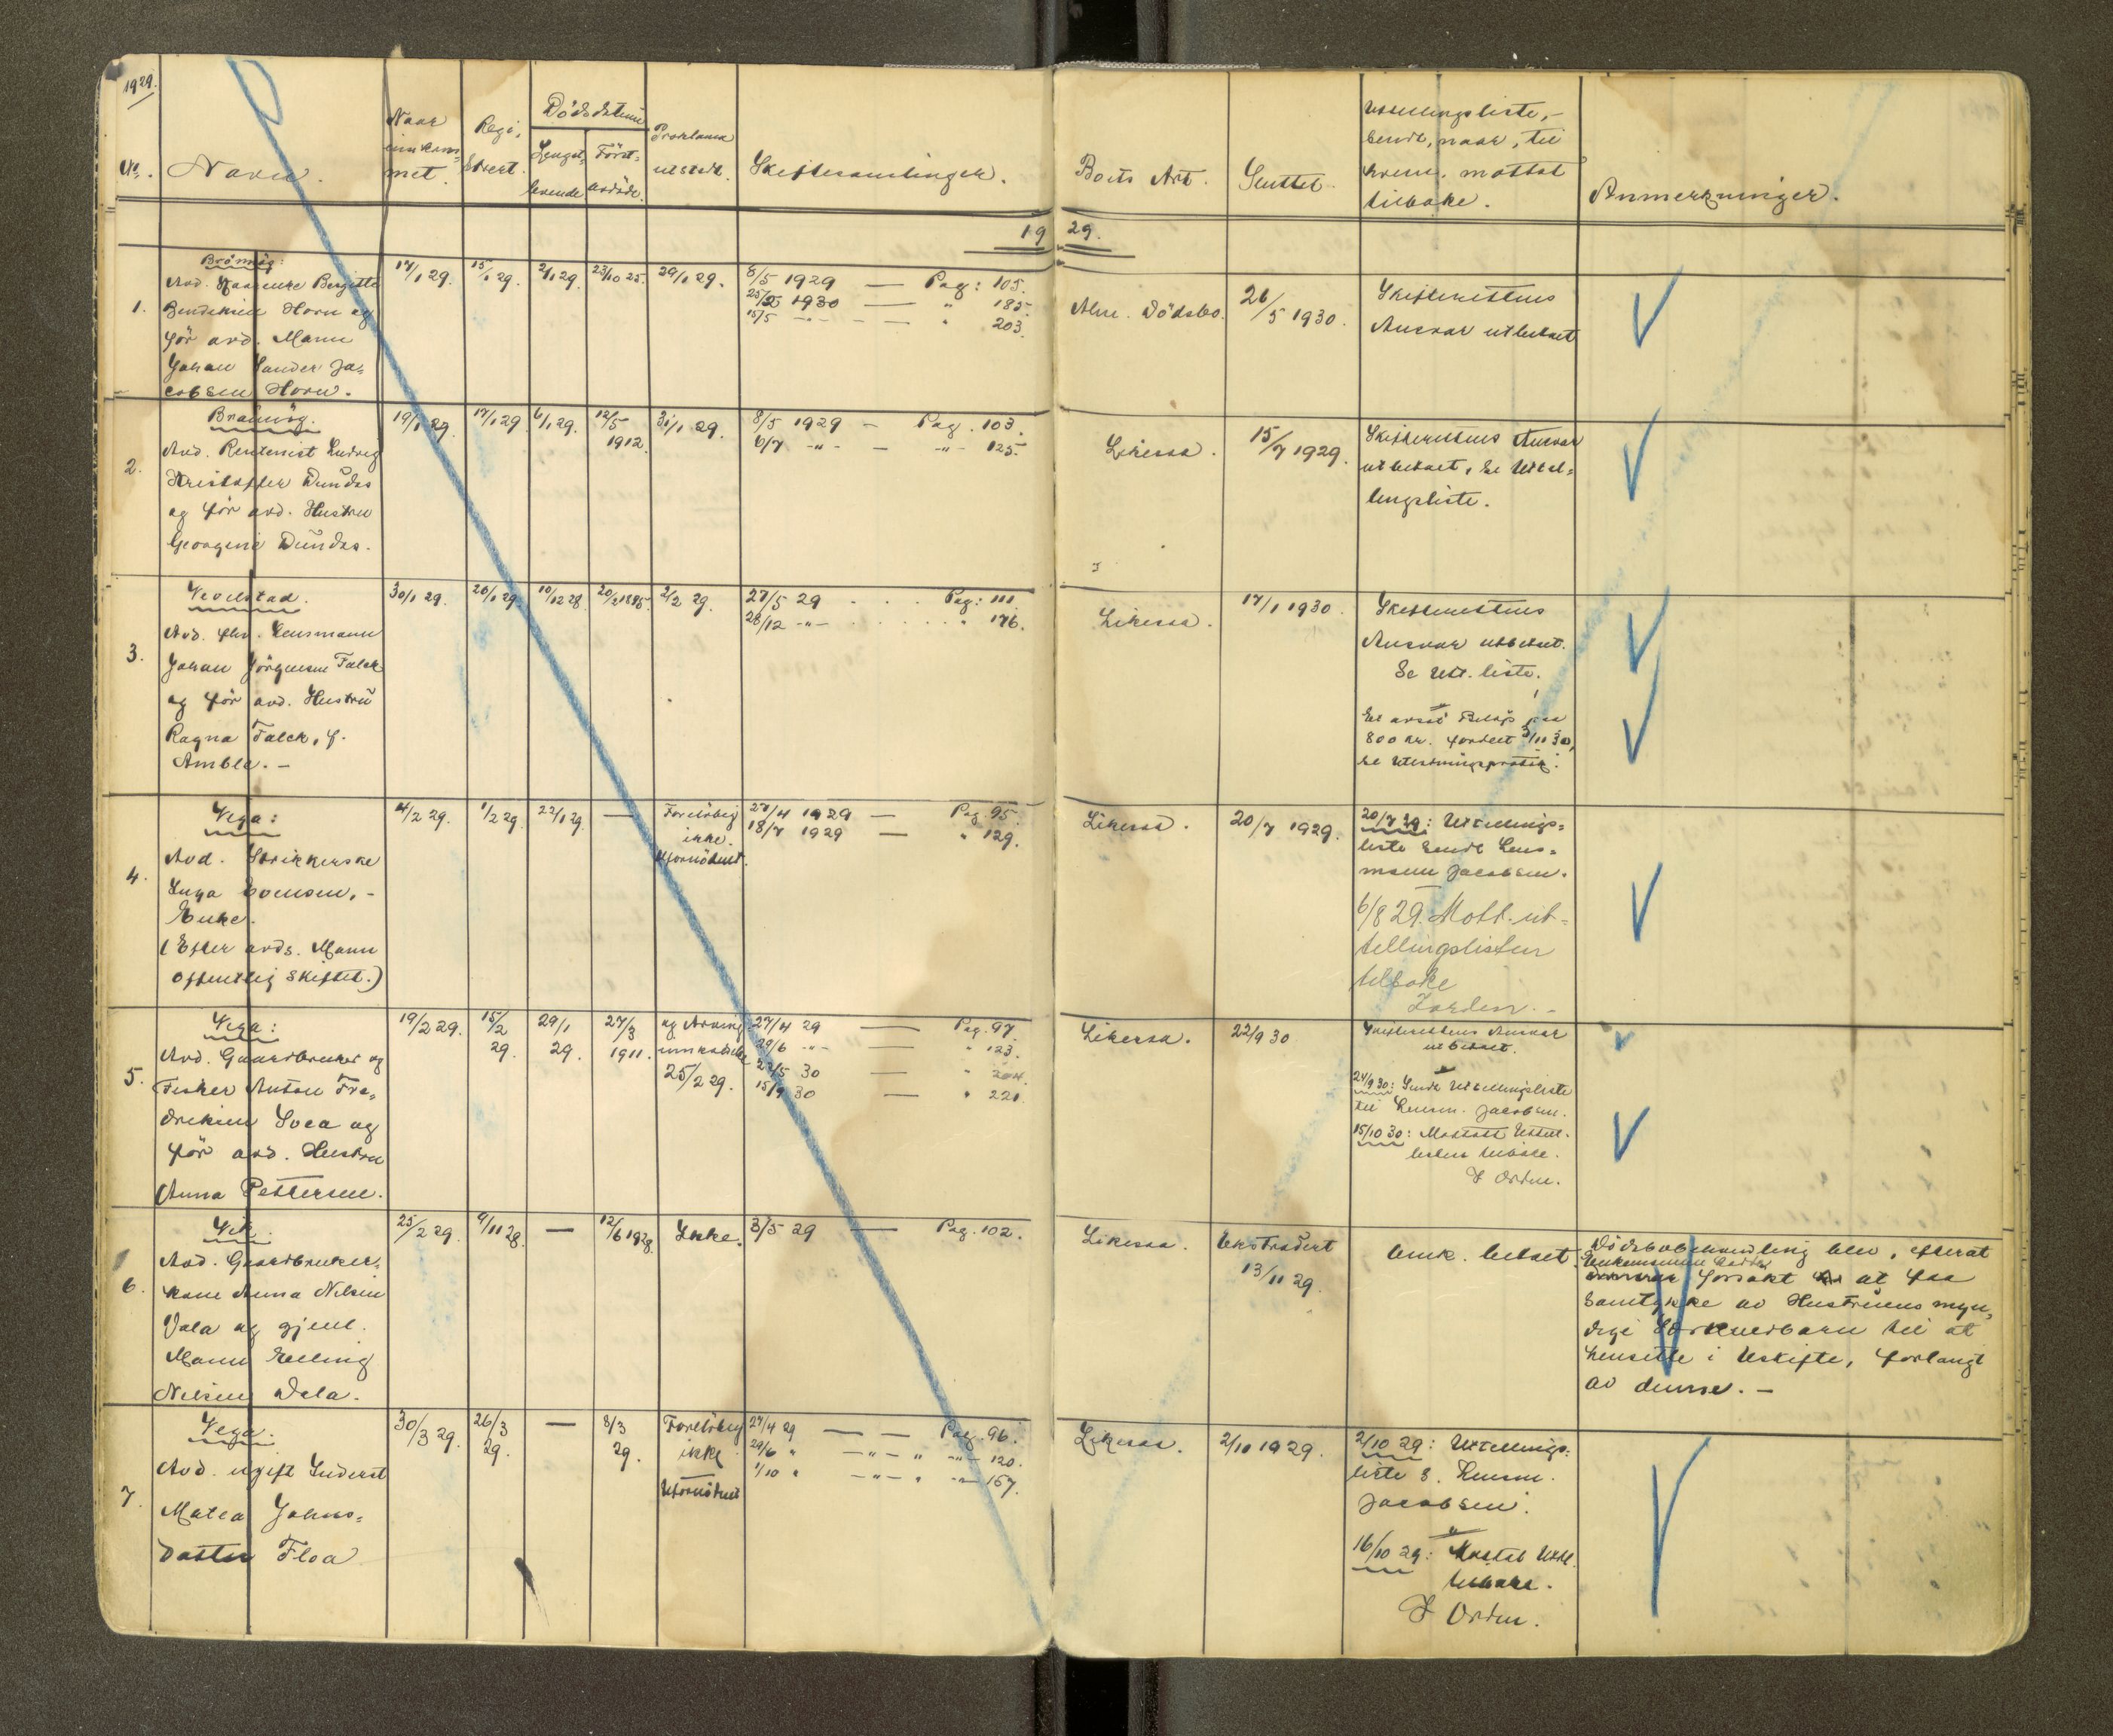 1929.
No. Navn. Naar innkom- met. Regi- strert. Dödsdatum Lengst- levende Först- avdöde. Proklama utstedt. Skiftesamlinger. Boets Art. Sluttet. Utdellingsliste, - sendt, naar, til hvem, mottat tilbake. Anmerkninger.
19 29.
Brönnöy:
1. Avd. Bergitte
Bendiksen Horn og
för avd. Mann
Johan Sander Ja-
cobsen Horn.
17/1 29. 15/1 29. 2/1 29. 23/10 25. 29/1 29.
8/5 1929 — Pag: 105.
25/2 1930 — " 185.
15/5 -"- — " 203.
Alm. Dödsbo. 26/5 1930.
Skifterettens
Ansvar utbetaet
Brönnöy.
2. Avd. Rentenist Ludvig
Kristoffer Dundas
og för avd. Hustru
Georgine Dundas.
19/1 29. 17/1 29 6/1 29. 12/5 1912. 31/1 29.
8/5 1929 — Pag. 103.
6/7 -"- — -"- 125.
Likesaa. 15/7 1929.
Skifterettens Ansvar
utbetaet, se Uttel-
lingsliste.
Vevelstad.
3. Avd. fhv. Lensmann
Johan Jörgensen Falck
og för avd. Hustru
Ragna Falck, f.
Amble. -
30/1 29. 26/1 29. 10/12 28. 20/2 1895. 2/2 29.
27/5 29 . . . Pag: 111.
28/12 -"- . . . . . . " 176.
Likesaa. 17/1 1930.
Skifterettens
Ansvar utbetaet.
Se Utt. liste.
Et avsat Belöp paa
800 kr. fordelt 3/11 30,
se
Vega:
4. Avd. Strikkerske
Inga Evensen, -
Enke.
(Efter avds. Mann
offentlig skiftet.)
4/2 29. 1/2 29. 22/1 29. —
Forelöbig
ikke.
Ufornödent.
27/4 1929 — Pag 95.
18/7 1929 — " 129.
Likesaa. 20/7 1929.
20/7 29: Uttellings-
liste sendt Lens-
mann Jacobsen.
6/8 29. Mott. ut-
tellingslisten
tilbake
Vega:
5. Avd. Gaardbruker og
Fisker Anton Fre-
driksen Svea og
för avd. Hustru
Anna Pettersen.
19/2 29. 15/2 29. 29/1 29. 27/3 1911.
og Arving
innkaldelse
25/2 29.
27/4 29 — Pag. 97.
29/6 -"- — " 123.
22/5 30 — " 204.
15/9 30 — " 221.
Likesaa. 22/9 30
Skifterettens Ansvar
utbetaet.
24/9 30: Sendt Uttellingsliste
til Lensm. Jacobsen.
15/10 30: Mottatt Uttel.
listen tilbake.
I Orden.
Vik:
6. Avd. Gaardbruker-
kone Anna Nilsen
Vala og gjenl.
Mann Elling
Nilsen Vala.
25/2 29. 9/11 28. — 12/6 1928. Ikke.
3/5 29 — Pag. 102.
Likesaa. Ekstradert
13/11 29.
Omk. betaet.
Dödsbobehandling blev, efterat
Enkemannen hadde
forsökt at faa
samtykke av Hustruens myn-
dige Særkuldbarn til at
hensitte i Uskifte, forlangt
av denne. -
Vega:
7. Avd. ugift Inderst
Matea Johns-
datter Floa
30/3 29. 26/3 29. — 8/3 29.
Forelöbig
ikke
Ufornödent
27/4 29 — — Pag. 96.
29/6 " —"— " —"— 120.
1/10 " —"— " —"— 157.
Likesaa. 2/10 1929.
2/10 29: Uttellings-
liste s. Lensm.
Jacobsen.
16/10 29: Mottat Uttl.
tilbake.
I Orden.